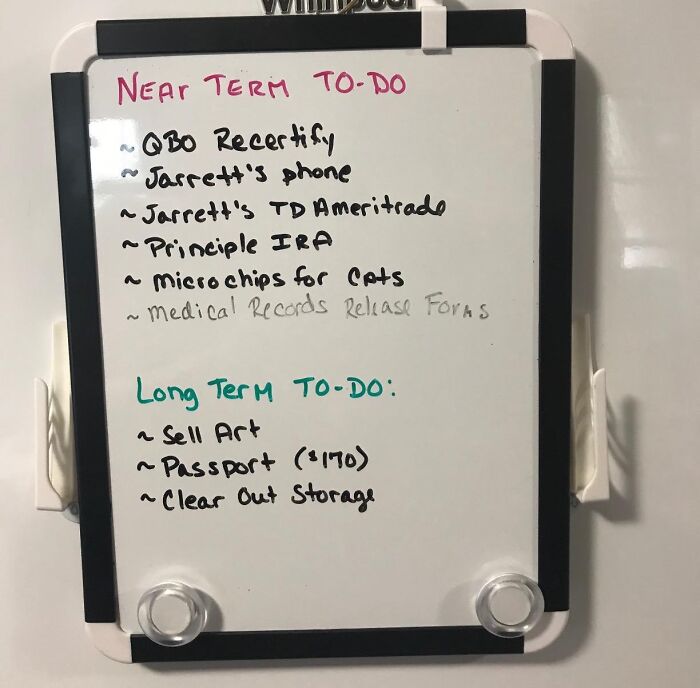 Whirlpool
NEAr TErM TO-DO
~ QBO Recertify
~ Jarrett's phone
~ Jarrett's TD Ameritrade
~ Principle IRA
~ microchips for CAts
~ medical Records Release Forms
Long TerM TO-DO:
~ Sell Art
~ Passport ($170)
~ Clear Out Storage